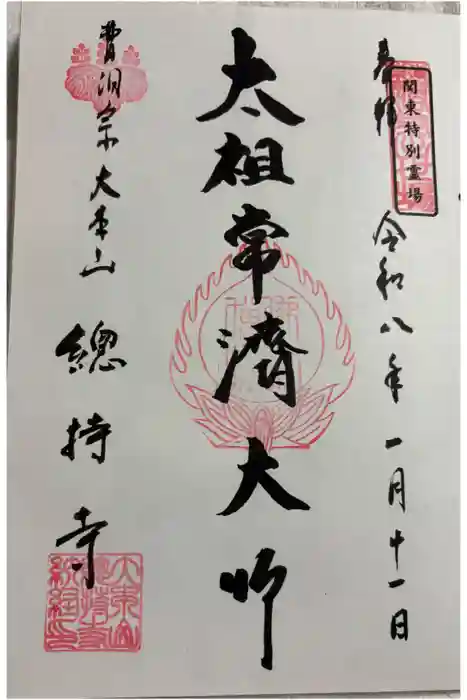 奉拝
関東特別霊場
令和八年一月十一日
太祖常濟大师
曹洞宗大本山
總持寺